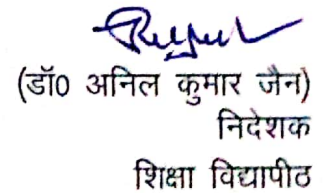 (डॉ0 अनिल कुमार जैन)
निदेशक
शिक्षा विद्यापीठ